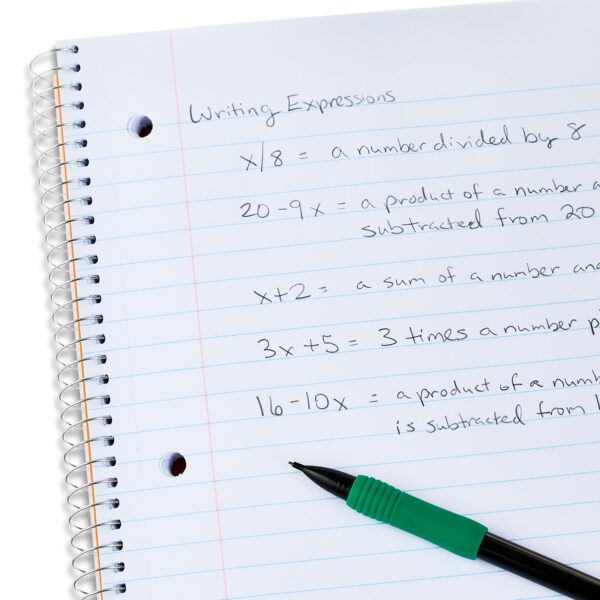 Writing Expressions
x/8 = a number divided by 8
20-9x = a product of a number a
subtracted from 20
x+2 = a sum of a number and
3x+5 = 3 times a number p
16-10x = a product of a numb
is subtracted from 1